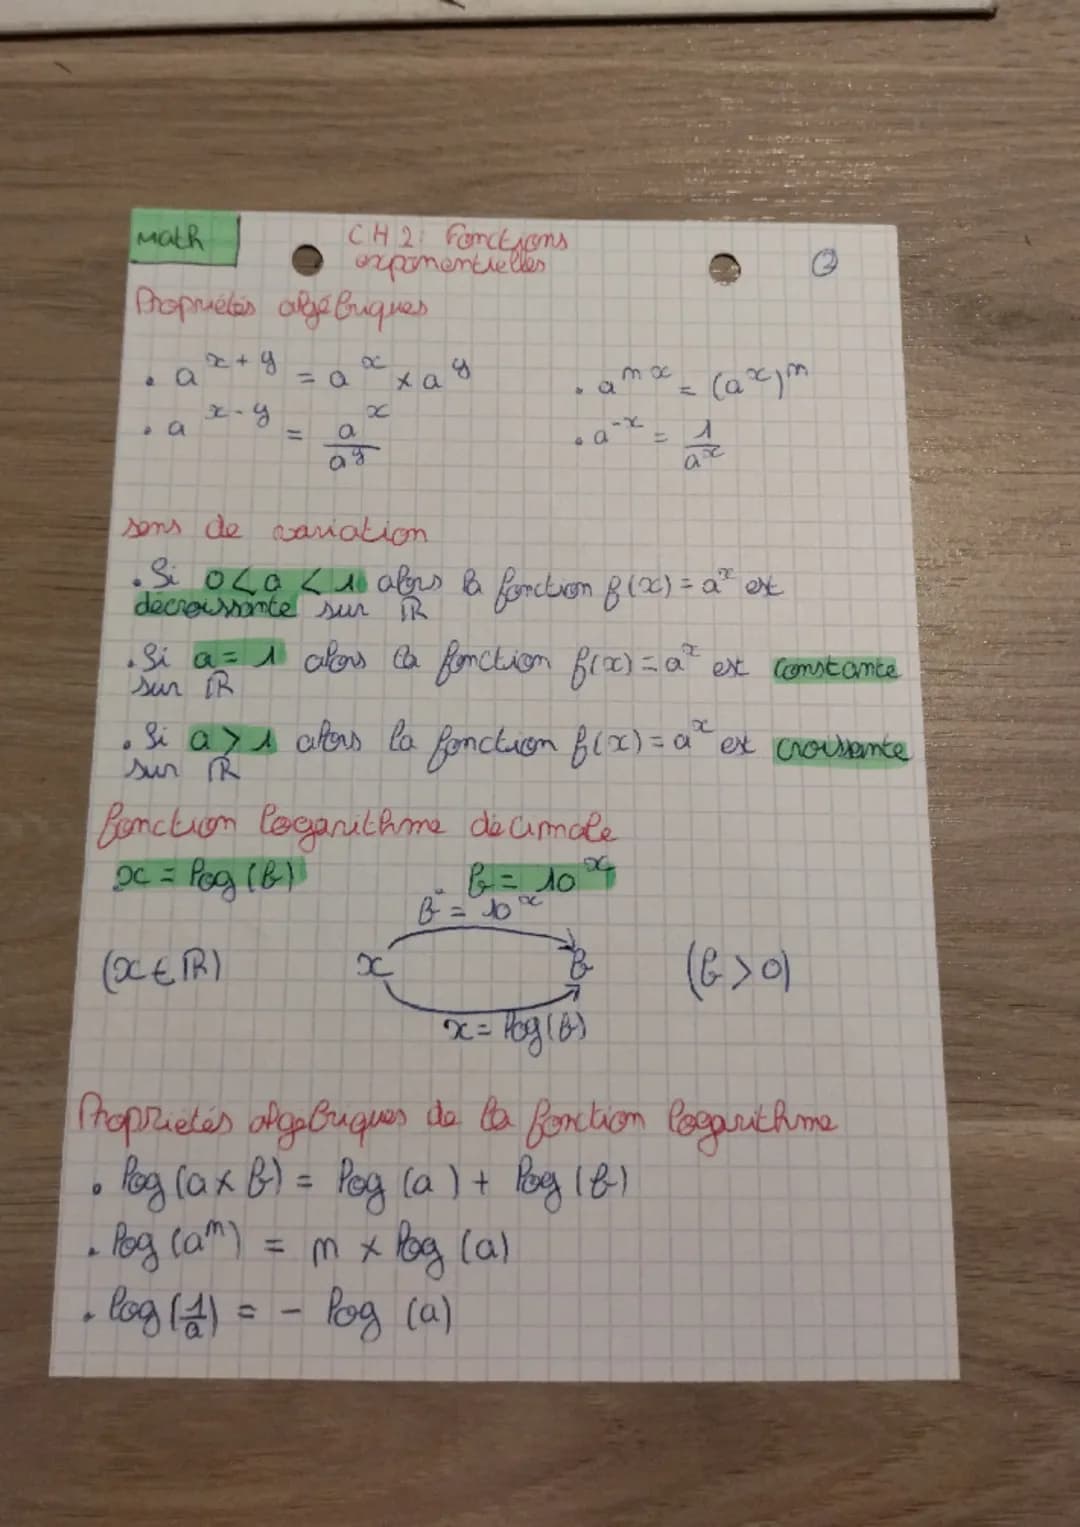 Math
CH 2: Fonctions
exponentielles
②
Propriétés algébriques
• a^{x+y} = a^x × a^y
• a^{mx} = (a^x)^m
• a^{x-y} = a^x / a^y
• a^{-x} = 1 / a^x
sens de variation
• Si 0 < a < 1 alors la fonction f(x) = a^x est
décroissante sur ℝ
• Si a = 1 alors la fonction f(x) = a^x est constante
sur ℝ
• Si a > 1 alors la fonction f(x) = a^x est croissante
sur ℝ
fonction logarithme décimale
x = log(b)
b = 10^x
b = 10^x
(x ∈ ℝ) x b (b > 0)
x = log(b)
Propriétés algébriques de la fonction logarithme
• log(a × b) = log(a) + log(b)
• log(a^m) = m × log(a)
• log(1/a) = - log(a)